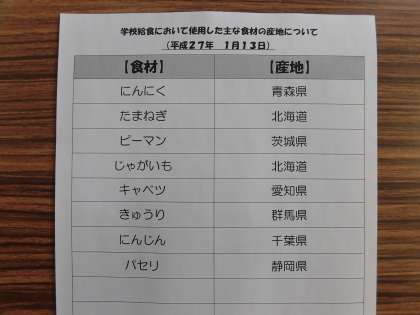 学校給食において使用した主な食材の産地について
（平成２７年　１月１３日）
【食材】　【産地】
にんにく　青森県
たまねぎ　北海道
ピーマン　茨城県
じゃがいも　北海道
キャベツ　愛知県
きゅうり　群馬県
にんじん　千葉県
パセリ　静岡県